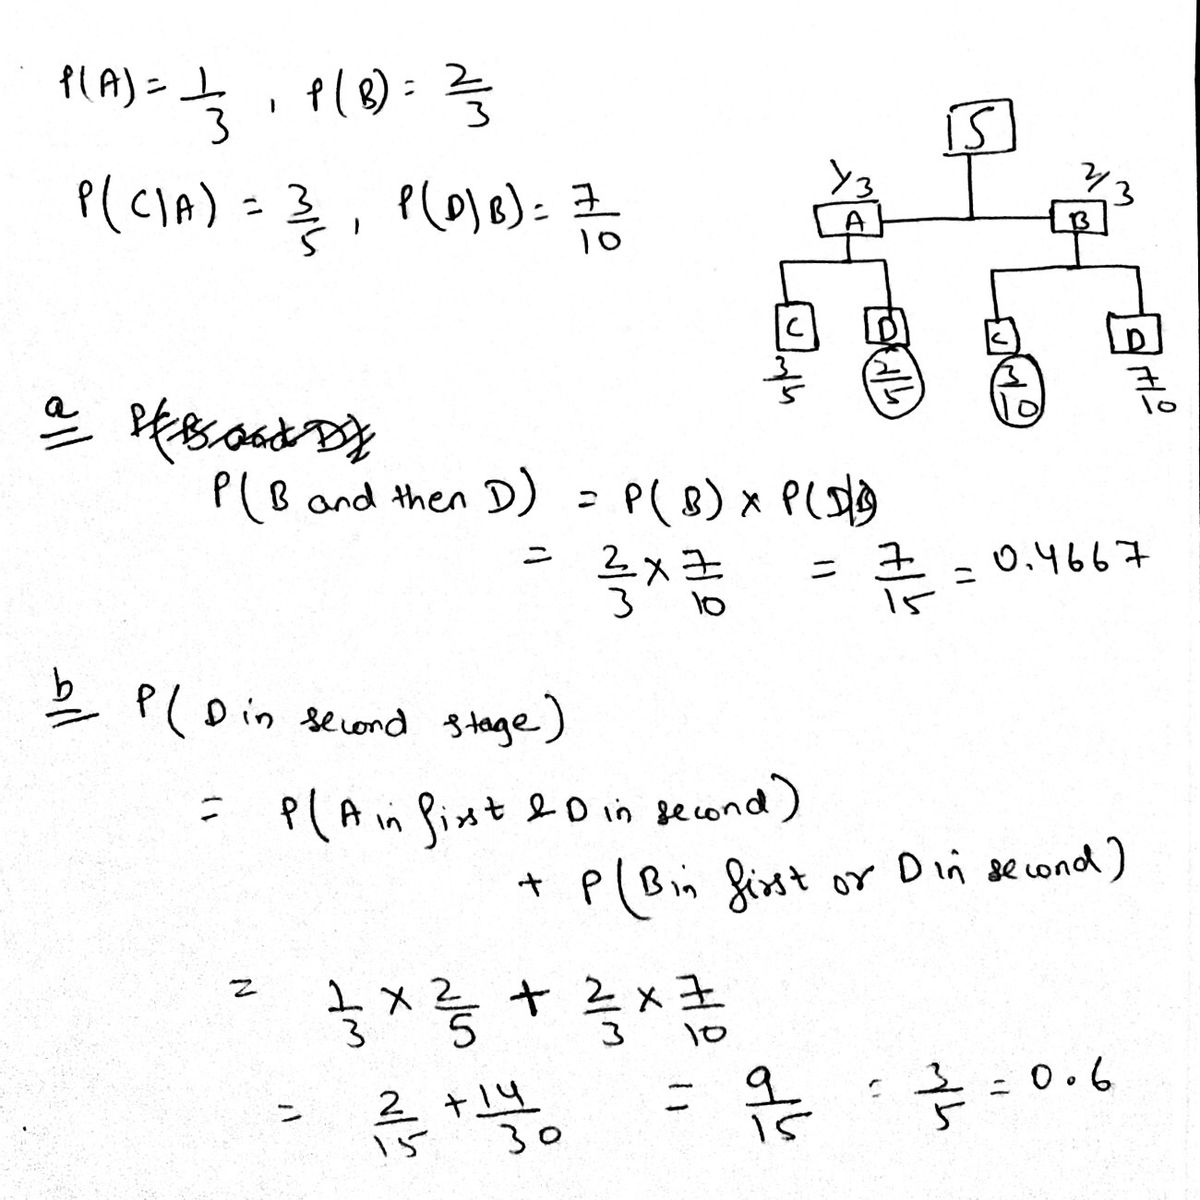 P(A) = 1/3 , P(B) = 2/3
P(C|A) = 3/5 , P(D|B) = 7/10
S
1/3 2/3
A B
C D C D
3/5 2/5 3/10 7/10
a P(B and D)
P(B and then D) = P(B) × P(D|B)
= 2/3 × 7/10 = 7/15 = 0.4667
b P(D in second stage)
= P(A in first & D in second)
+ P(B in first or D in second)
= 1/3 × 2/5 + 2/3 × 7/10
= 2/15 + 14/30 = 9/15 = 3/5 = 0.6